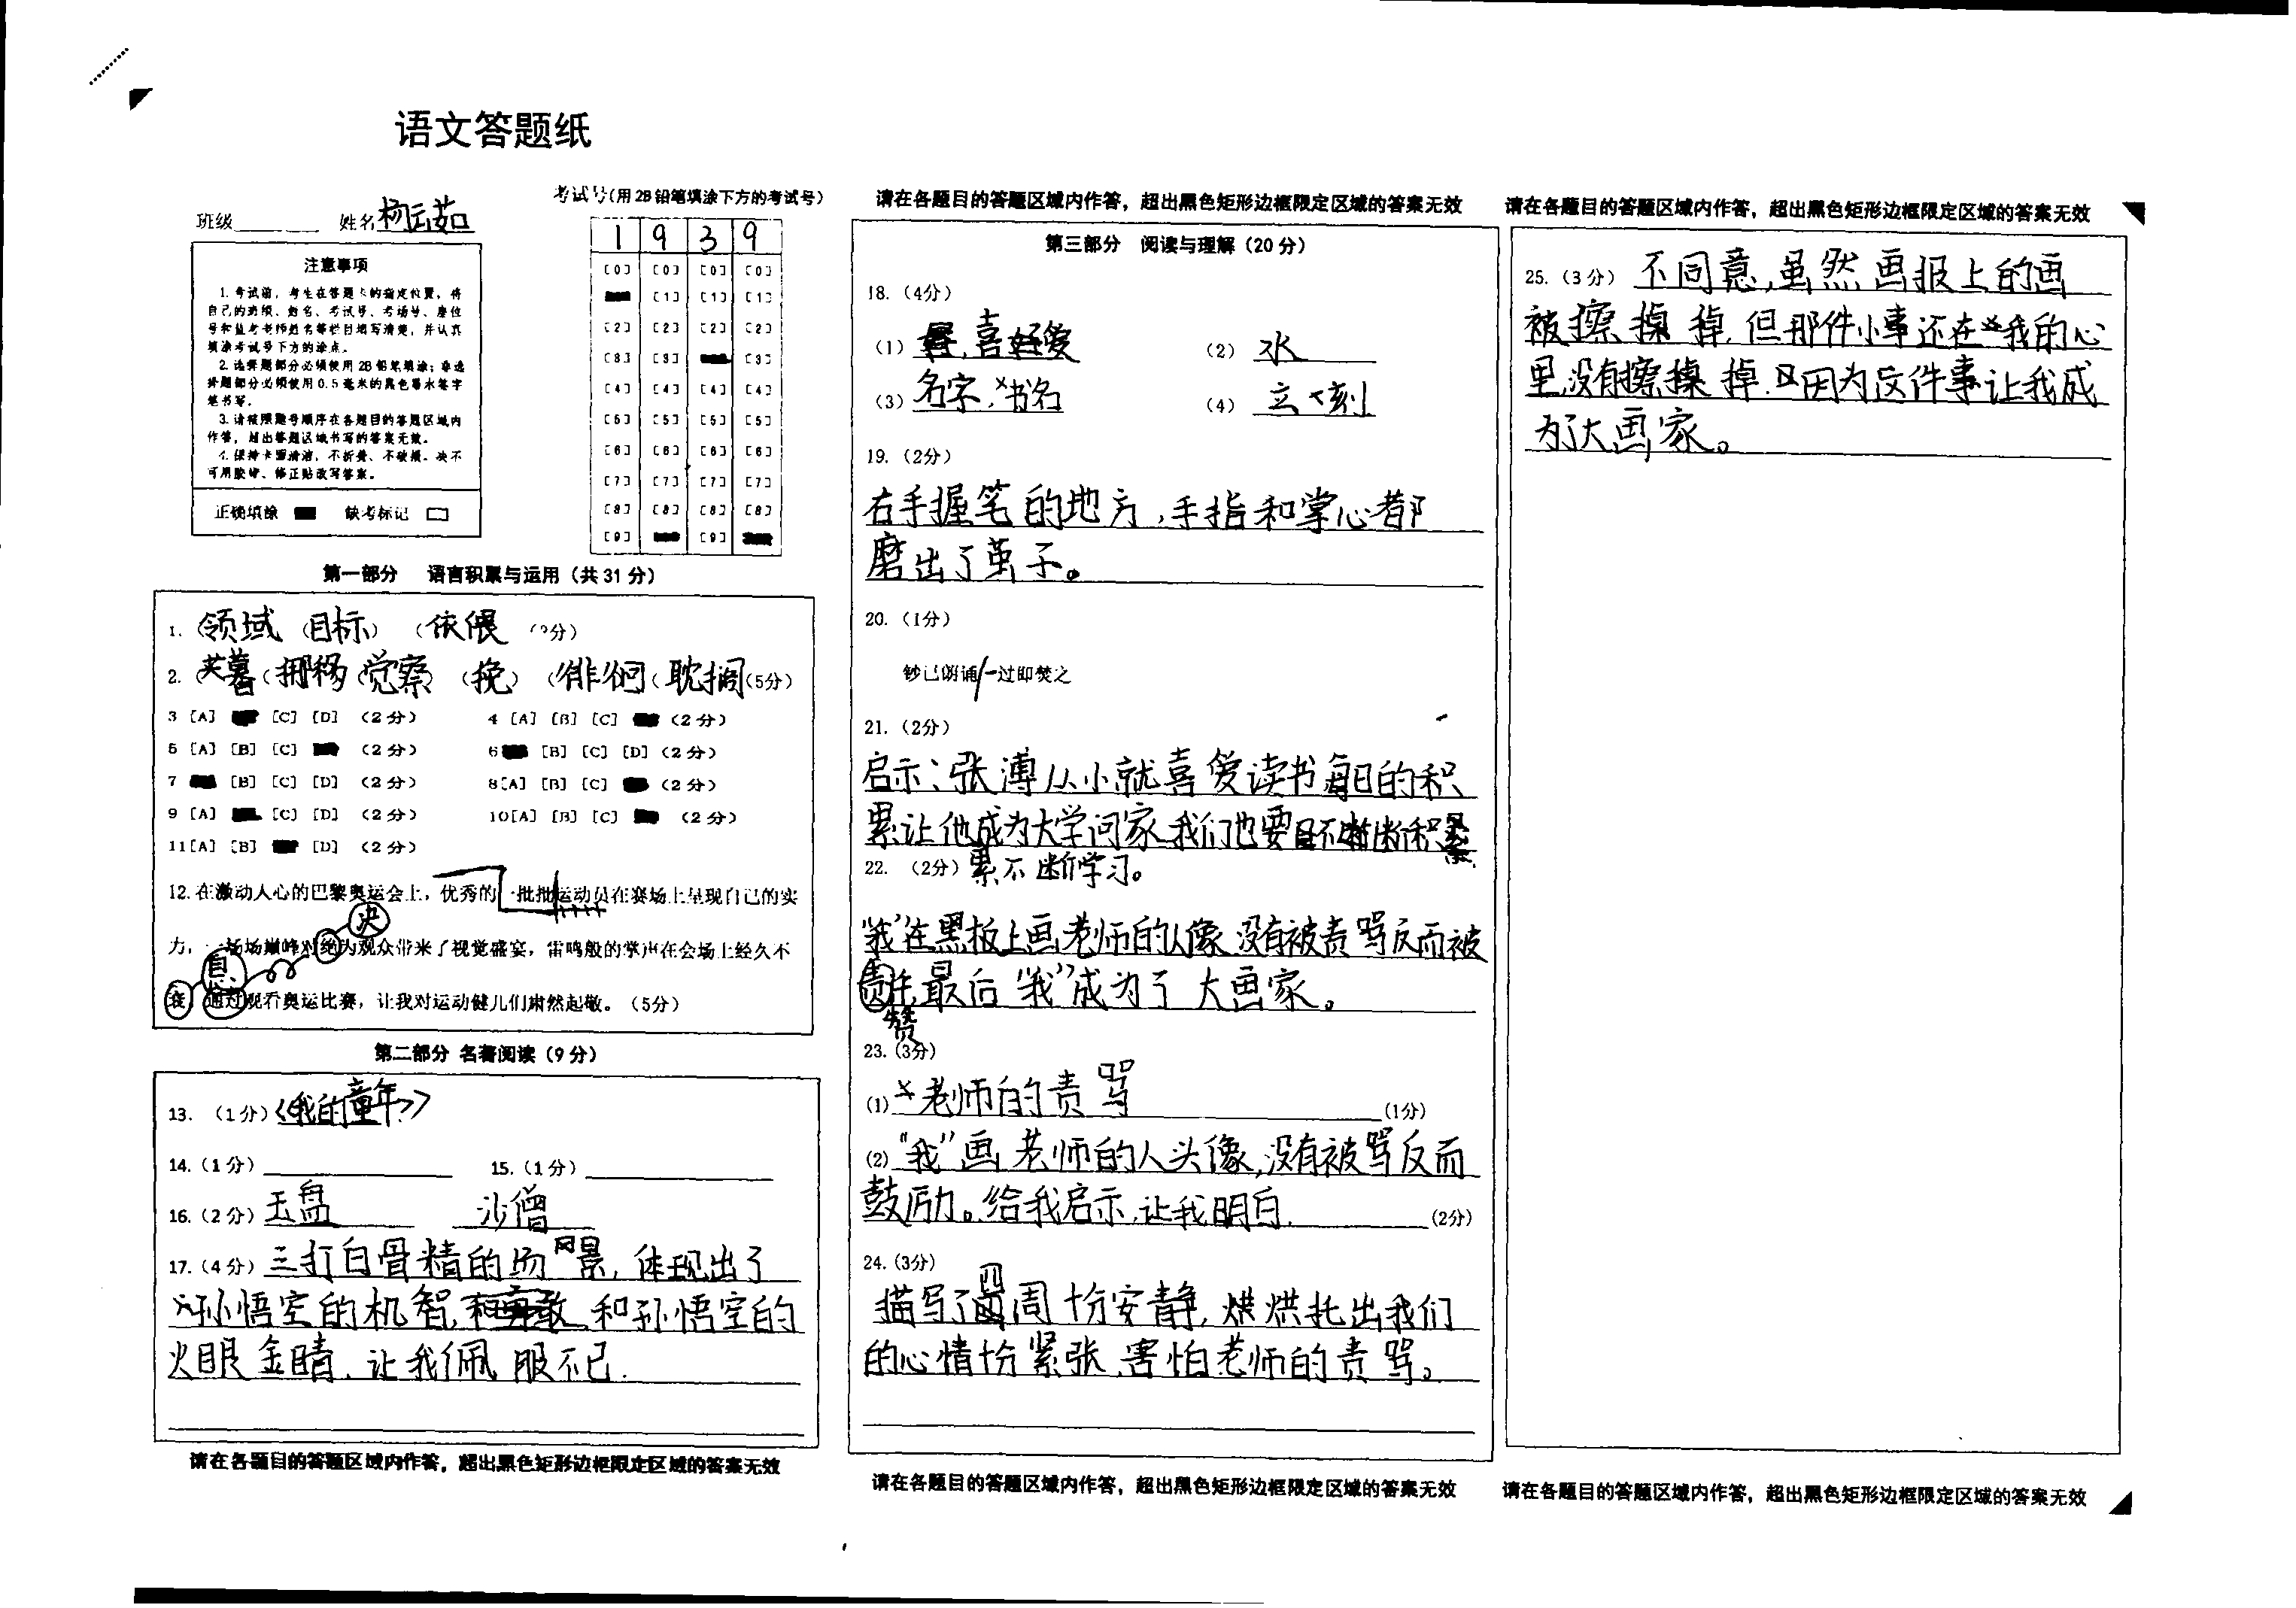 语文答题纸
班级 姓名 杨云茹
考试号(用 2B 铅笔填涂下方的考试号)
1 9 3 9
[0] [0] [0] [0]
[1] [1] [1]
[2] [2] [2] [2]
[3] [3] [3]
[4] [4] [4] [4]
[5] [5] [5] [5]
[6] [6] [6] [6]
[7] [7] [7] [7]
[8] [8] [8] [8]
[9] [9]
注意事项
1. 考试前，考生在答题卡的指定位置，将
自己的班级、姓名、考试号、考场号、座位
号和监考老师姓名等栏目填写清楚，并认真
填涂考试号下方的涂点。
2. 选择题部分必须使用 2B 铅笔填涂；非选
择题部分必须使用 0.5 毫米的黑色墨水签字
笔书写。
3. 请按照题号顺序在各题目的答题区域内
作答，超出答题区域书写的答案无效。
4. 保持卡面清洁，不折叠、不破损。决不
可用胶带、修正贴改写答案。
正确填涂 缺考标记
第一部分 语言积累与运用（共 31 分）
1. （领域 （目标） （依偎 分）
2. （芙蓉（挪移 觉察） （挽） （徘徊（ 耽搁（5分）
3 [A] [C] [D] （2 分） 4 [A] [B] [C] （2 分）
5 [A] [B] [C] （2 分） 6 [B] [C] [D] （2 分）
7 [B] [C] [D] （2 分） 8[A] [B] [C] （2 分）
9 [A] [C] [D] （2 分） 10[A] [B] [C] （2 分）
11[A] [B] [D] （2 分）
12. 在激动人心的巴黎奥运会上，优秀的一批批运动员在赛场上呈现自己的实
决
力，一场场巅峰对绝为观众带来了视觉盛宴，雷鸣般的掌声在会场上经久不
衰。通过观看奥运比赛，让我对运动健儿们肃然起敬。（5分）
第二部分 名著阅读（9 分）
13. （1 分）《我的童年》
14.（1 分） 15.（1 分）
16.（2 分） 玉帛 沙僧
17.（4 分） 三打白骨精的场景，体现出了
孙悟空的机智，和孙悟空的
火眼金睛，让我佩服不已.
请在各题目的答题区域内作答，超出黑色矩形边框限定区域的答案无效
请在各题目的答题区域内作答，超出黑色矩形边框限定区域的答案无效
第三部分 阅读与理解（20 分）
18.（4分）
（1） 喜爱 （2） 水
（3） 名字，书名 （4） 立刻
19.（2分）
右手握笔的地方，手指和掌心都
磨出了茧子。
20.（1分）
钞已朗诵/一过即焚之
21.（2分）
启示：张溥从小就喜爱读书每日的积
累让他成为大学问家，我们也要不断积
22. （2分） 累不断学习。
“我”在黑板上画老师的人像没有被责骂反而被
责许，最后“我”成为了大画家。
赞
23.（3分）
(1) 老师的责骂 (1分)
(2) “我”画老师的人头像，没有被骂反而
鼓励。给我启示，让我明白. (2分)
24.（3分）
描写了四周十份安静，烘托出我们
的心情十份紧张，害怕老师的责骂。
请在各题目的答题区域内作答，超出黑色矩形边框限定区域的答案无效
请在各题目的答题区域内作答，超出黑色矩形边框限定区域的答案无效
25.（3分） 不同意，虽然画报上的画
被擦掉，但那件小事还在我的心
里，没有擦掉，因为这件事让我成
为了大画家。
请在各题目的答题区域内作答，超出黑色矩形边框限定区域的答案无效